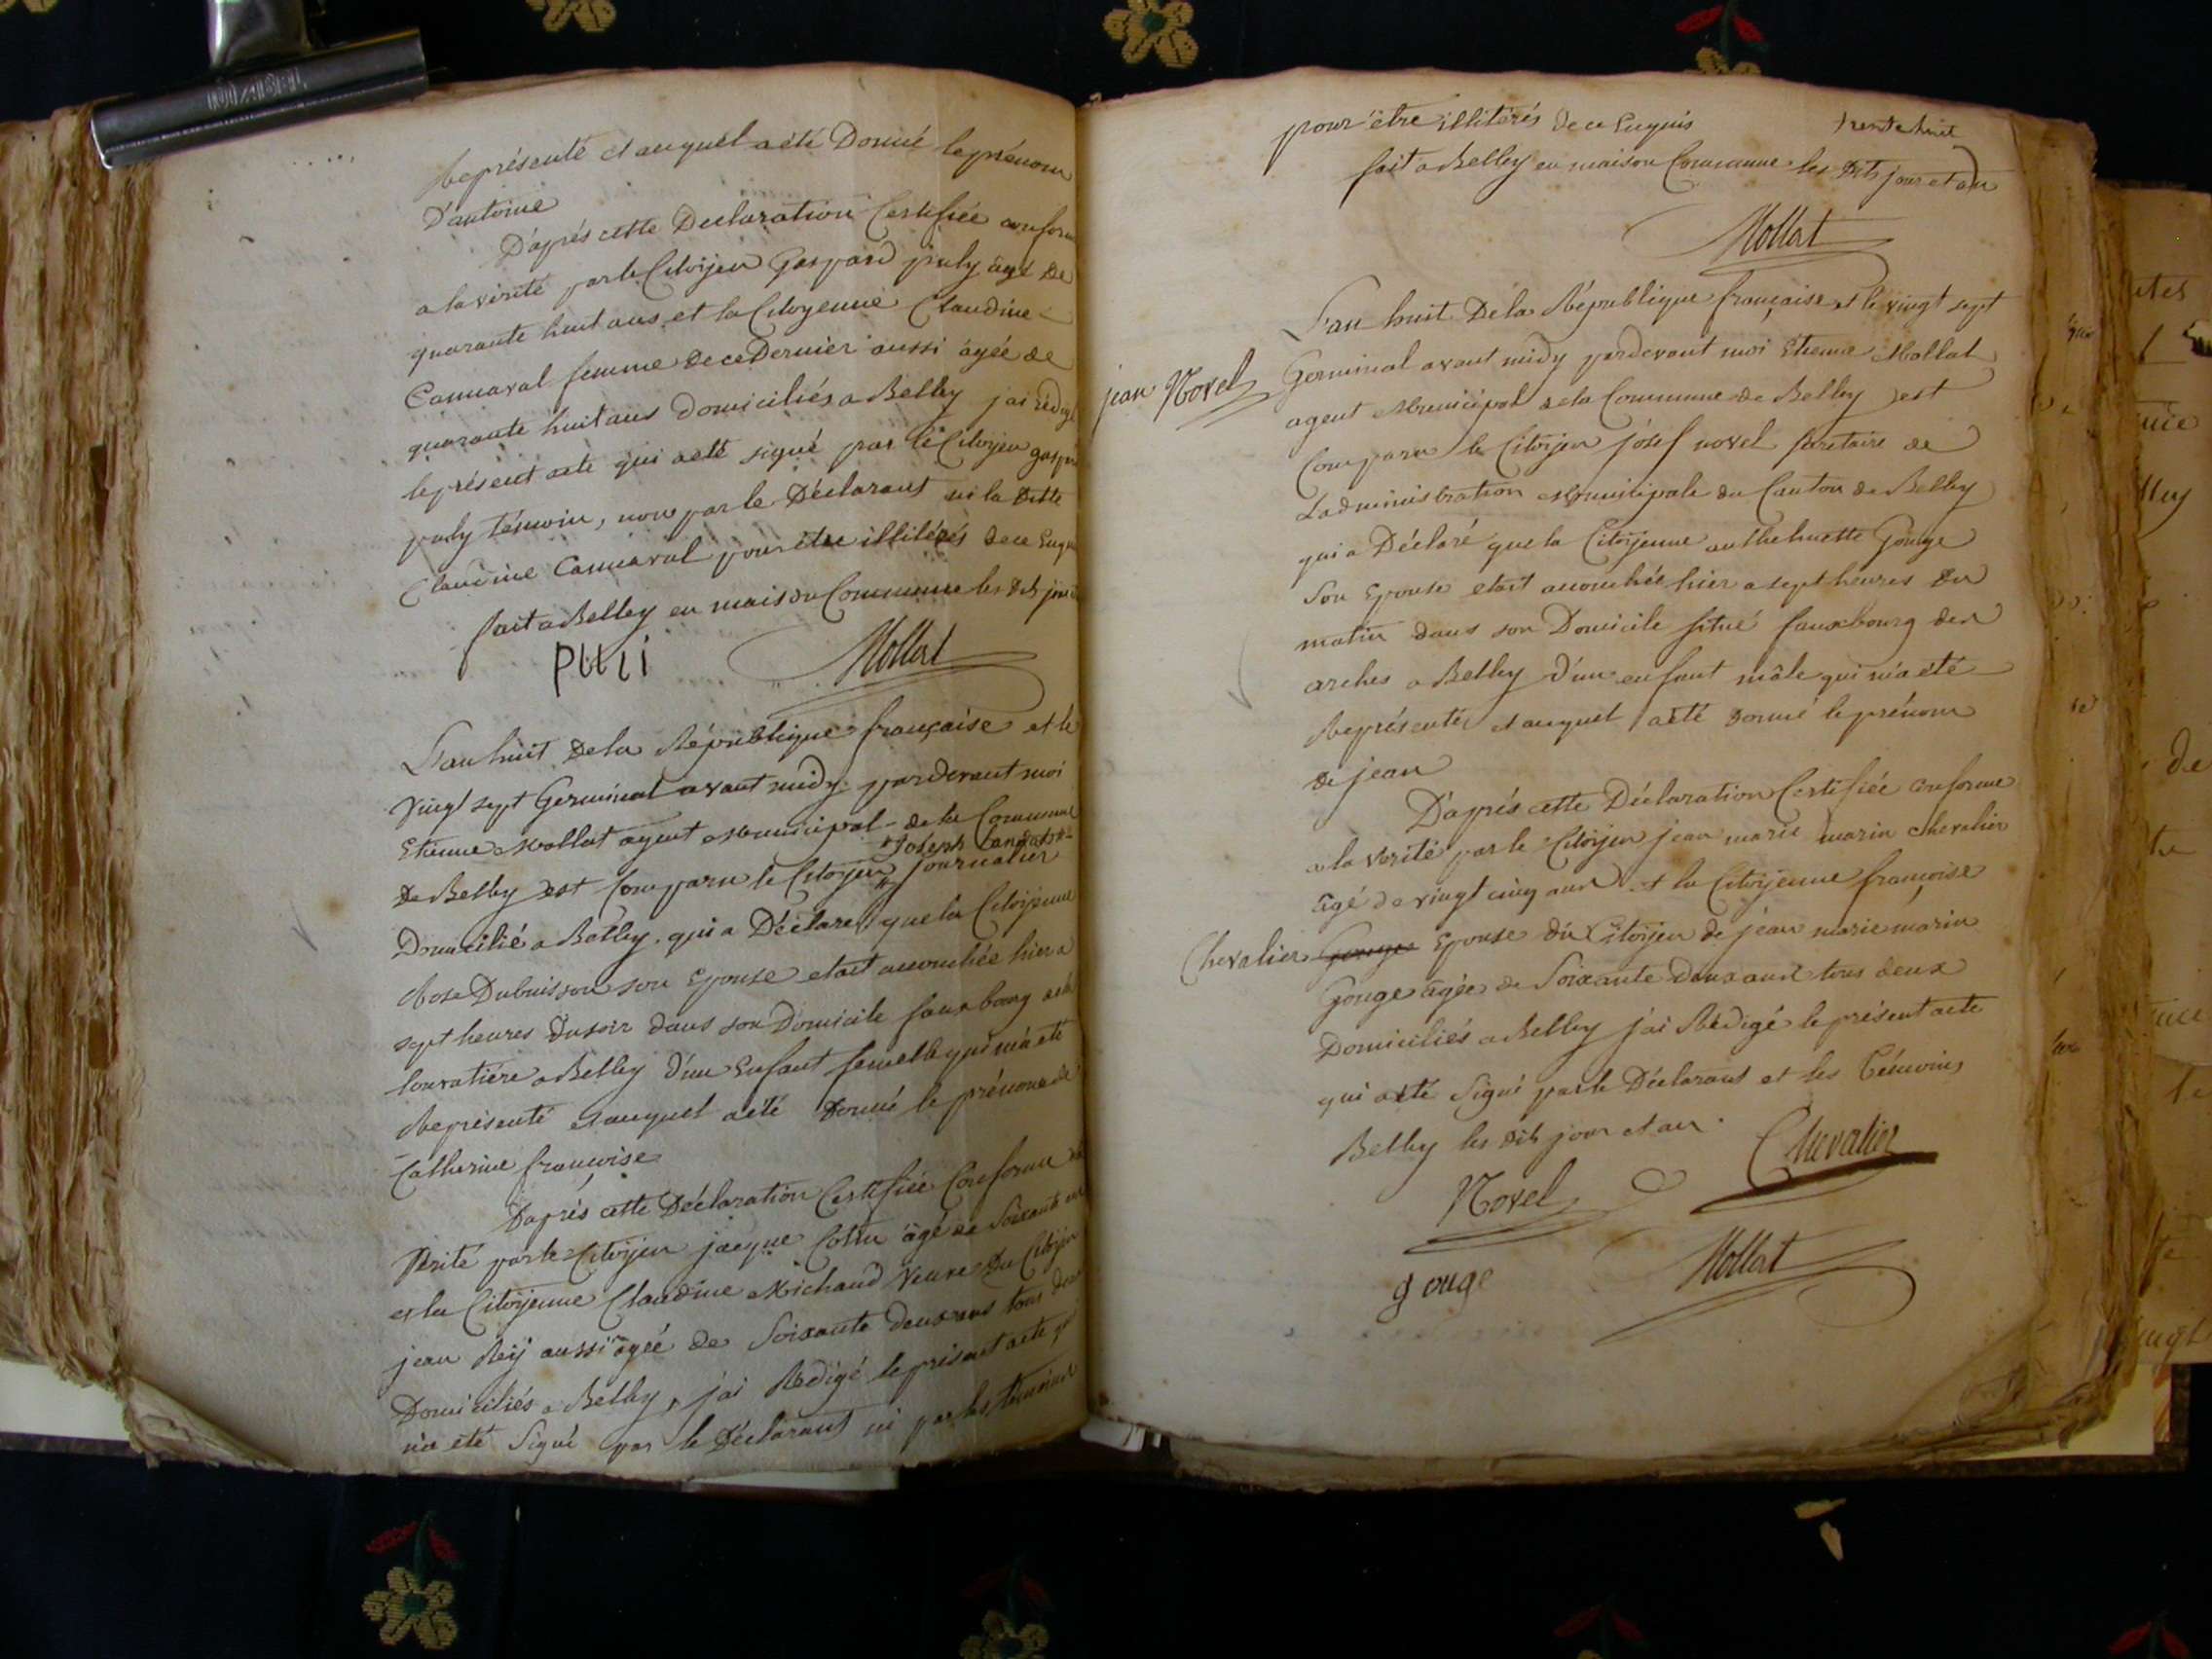 Représenté et auquel a été Donné le prénom
D'antoine
D'après cette Declaration Certifiée conforme
a la vérité par le Citoyen Gaspard puly âgé De
quarante huit ans et la Citoyenne Claudine
Cannaval femme de ce Dernier aussi agée de
quarante huit ans Domiciliés a Belley j'ai Rédigé
le présent acte qui a été signé par le Citoyen gaspard
puly témoin, non par le Déclarant ni la ditte
Claudine Cannaval pour être illitérés de ce Enquis
fait a Belley en maison Commune les dits jour
puli Mollat
L'an huit De la République française et le
vingt sept Germinal avant midy pardevant moi
Etienne Mollat agent Municipal de la Commune
Joseph
De Belley est Comparu le Citoyen journalier
Domicilié a Belley, qui a Déclaré que la Citoyenne
Rose Dubuisson son Epouse etait accouchée hier a
sept heures du soir dans son Domicile fauxbourg de la
louvatière a Belley D'un Enfant femelle qui m'a été
Représenté et auquel a été Donné le prénom de
Catherine françoise
D'après cette Déclaration Certifiée Conforme
vérité par le Citoyen jacque Collin âgé de Soixante
et la Citoyenne Claudine Michaud Veuve Du Citoyen
jean Rey aussi agée de Soixante Deux ans tous deux
Domiciliés a Belley, j'ai Rédigé le présent acte qui
n'a été Signé par le Déclarant ni par les témoins
pour être illitérés de ce Enquis
trente huit
fait a Belley en maison Commune les dits jour et an
Mollat
L'an huit De la République française et le vingt sept
jean Novel
Germinal avant midy pardevant moi Etienne Mollat
agent Municipal de la Commune de Belley est
Comparu le Citoyen josef novel secretaire de
L'administration Municipale du Canton de Belley
qui a Déclaré que la Citoyenne anthelmette Gouge
Son Epouse etait accouchée hier a sept heures du
matin dans son Domicile situé fauxbourg des
arches a Belley D'un enfant mâle qui m'a été
Représenté et auquel a été donné le prénom
de jean
D'après cette Déclaration Certifiée conforme
a la vérité par le Citoyen jean marie marin chevalier
âgé de vingt cinq ans et la Citoyenne françoise
Chevalier Gouge Epouse du Citoyen de jean marie marin
Gouge âgée de Soixante Deux ans tous deux
Domiciliés a Belley j'ai Rédigé le présent acte
qui a été Signé par le Déclarant et les Témoins
Belley les dits jour et an.
Chevalier
Novel
gouge Mollat